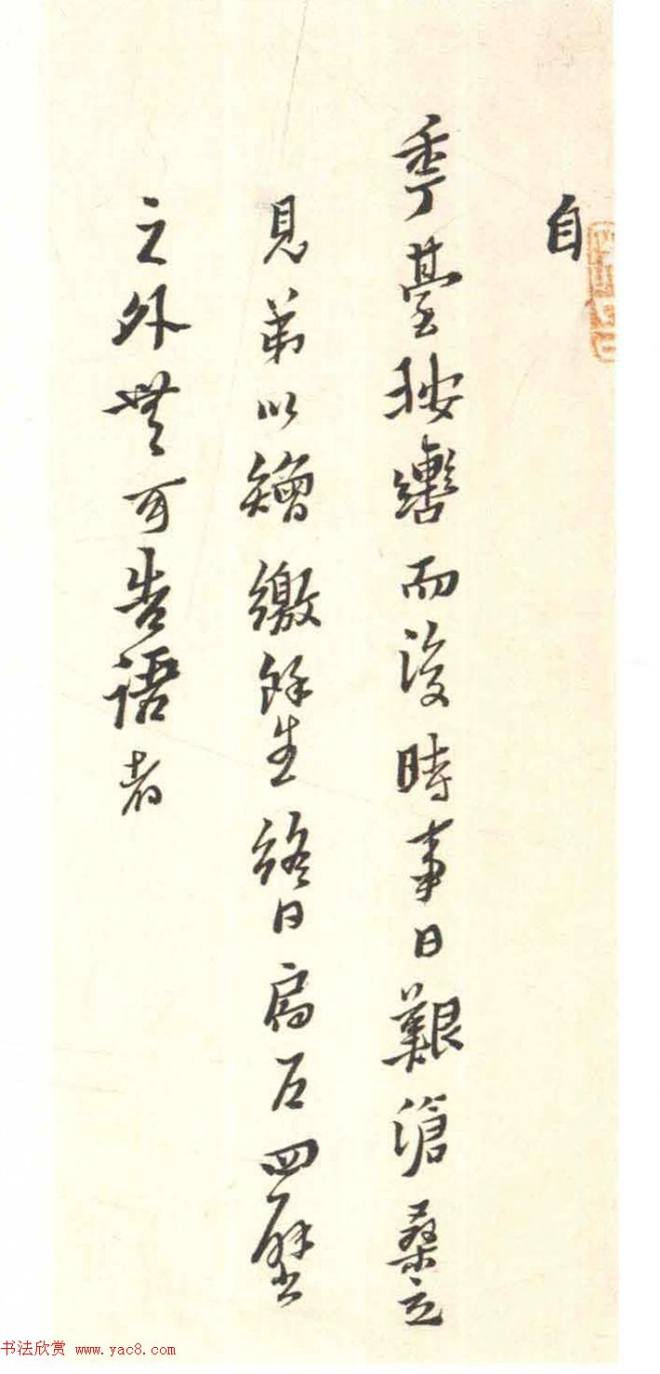 自
臺按轡而後時事日艱滄桑立
見弟以矰繳餘生終日扃户四壁
之外無可告語者
书法欣赏 www.yac8.com